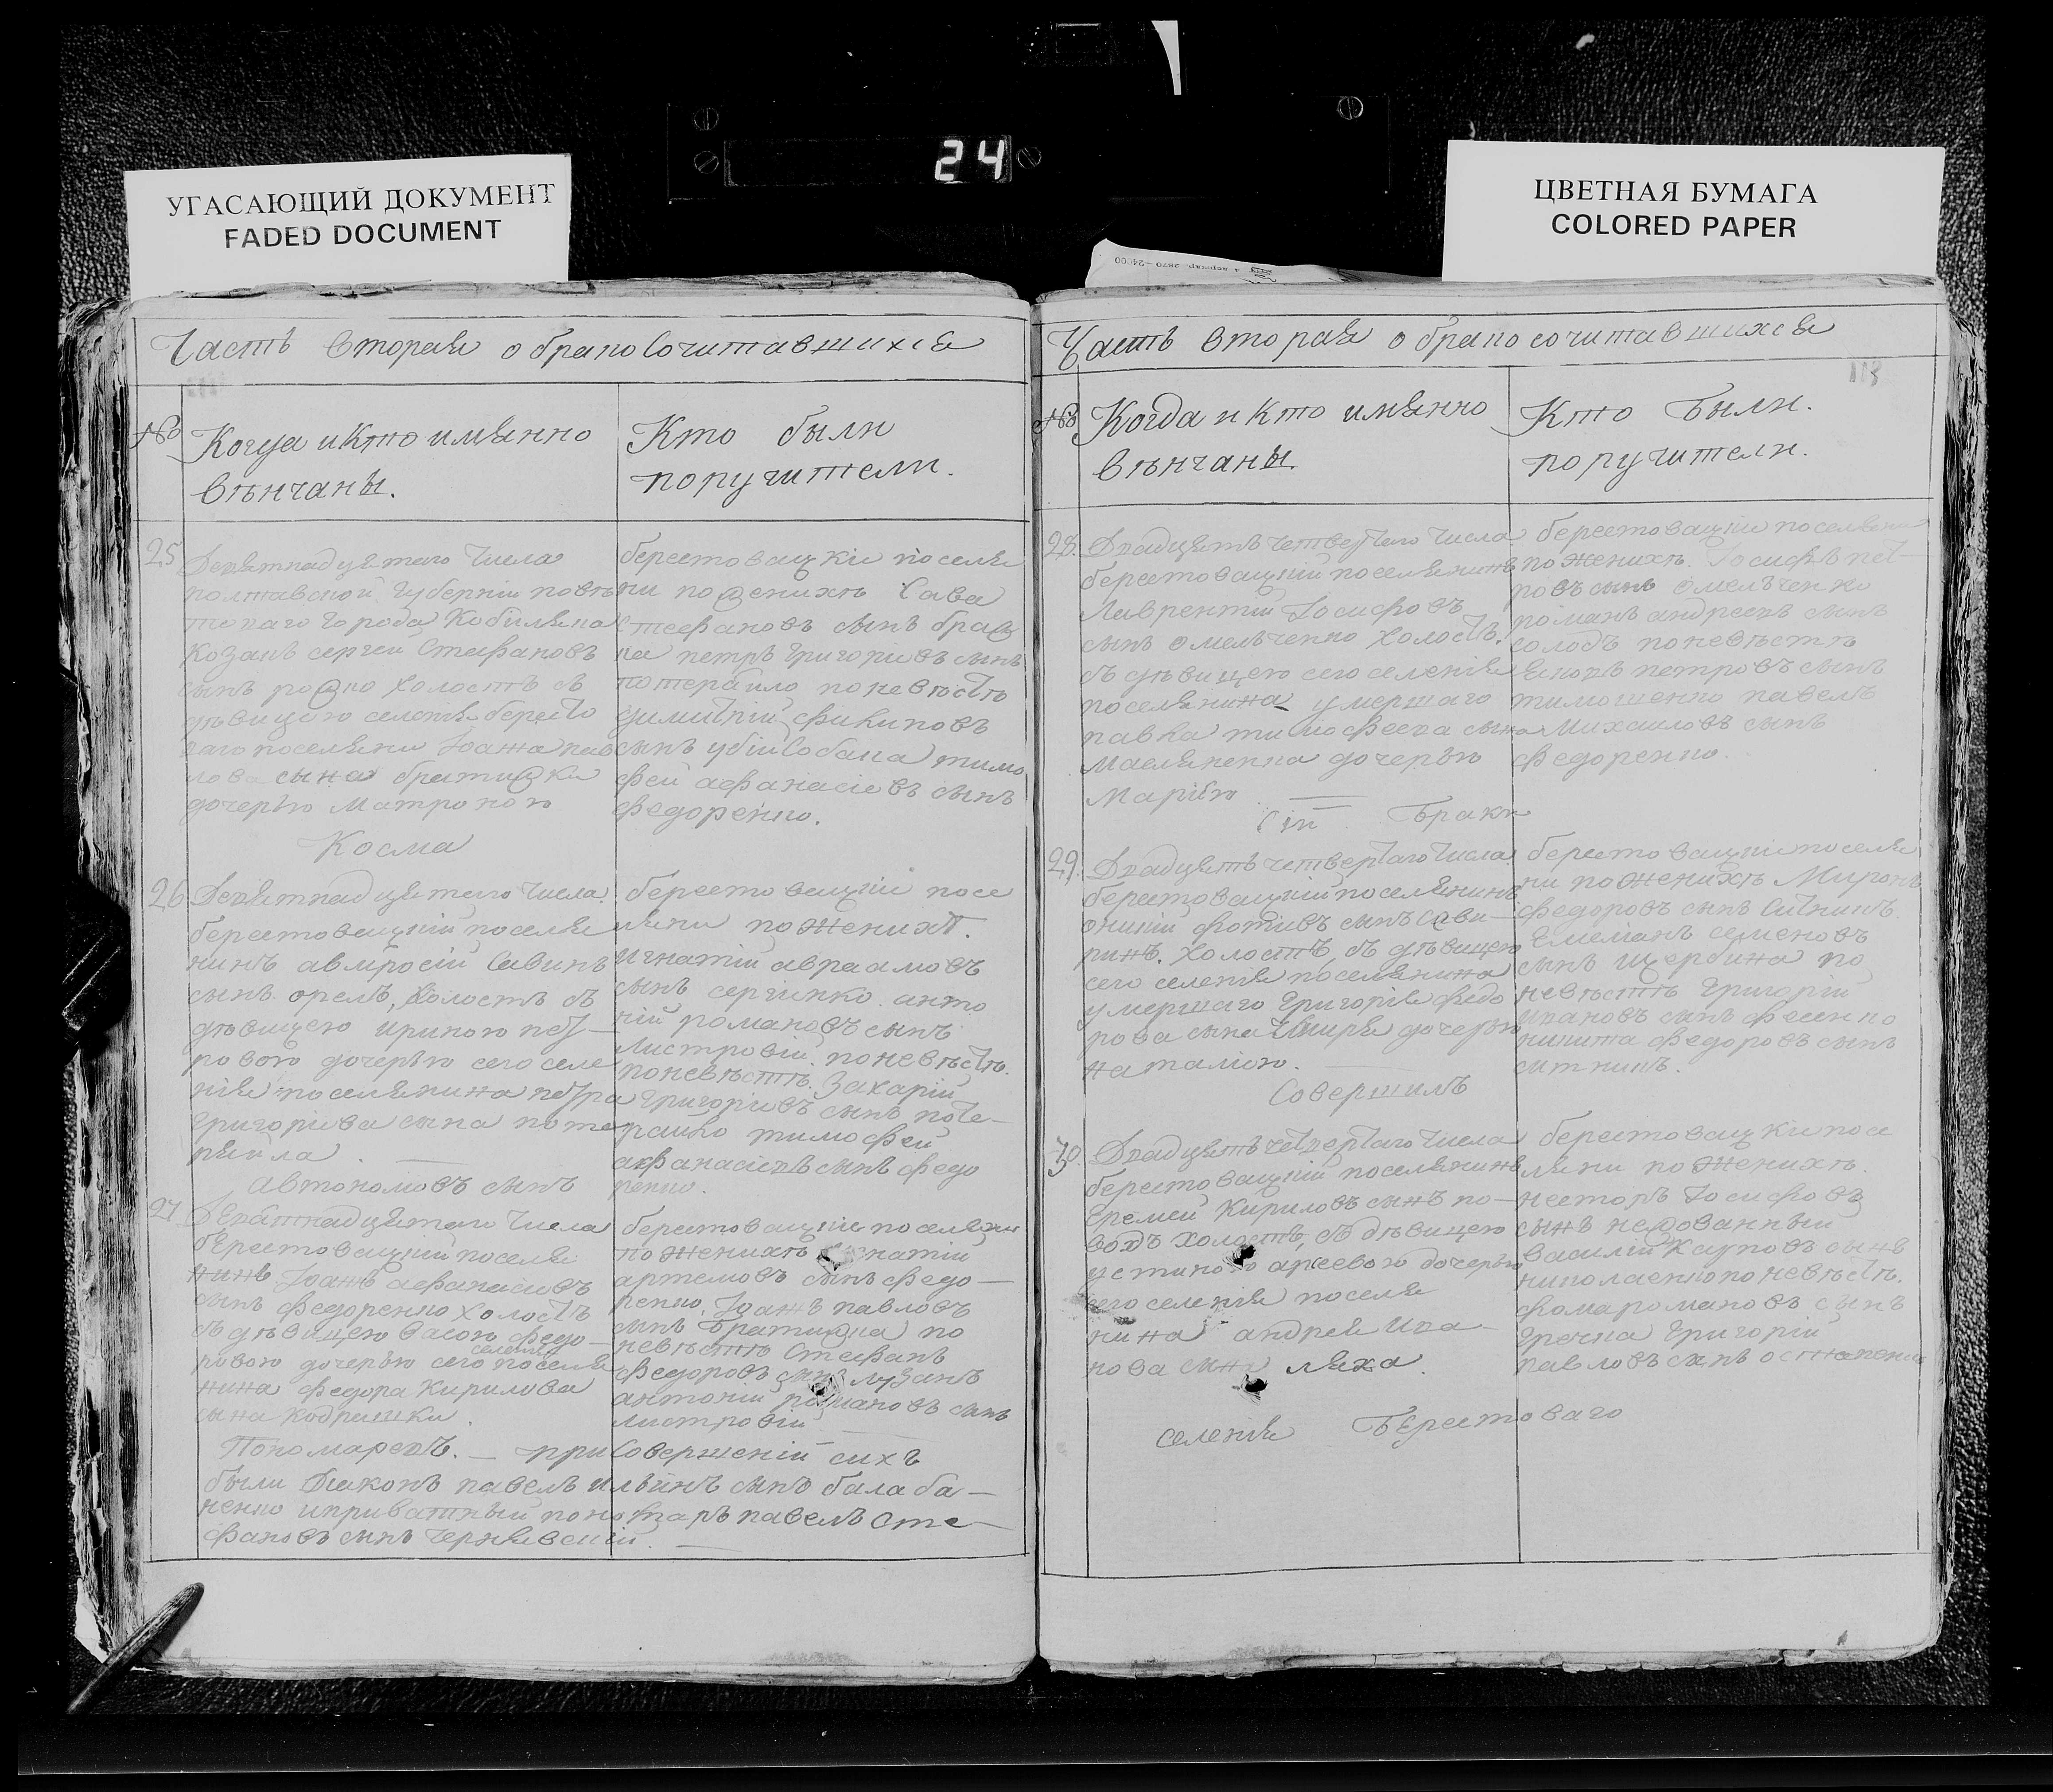 24
УГАСАЮЩИЙ ДОКУМЕНТ
FADED DOCUMENT
ЦВЕТНАЯ БУМАГА
COLORED PAPER
Часть вторая о бракосочитавшихся
№
Когда и кто имянно
вѣнчаны.
Кто были
поручители.
25
Девятнадцятаго числа
полтавской губерніи повѣ
товаго города Кобиляка
козакъ сергей Стефановъ
холостъ съ
дѣвицею селенія бересто
ваго поселяни Іоана пав
лова сына братишки
дочерью Матроною
берестовацкіи поселя
ни по женихѣ Сава
Стефановъ сынъ
петръ григориевъ сынъ
по невѣстѣ
димитрій филиповъ
сынъ убійсобака тимо
фей афанасіевъ сынъ
федоренко.
Косма
26
Девятнадцятаго числа
берестовацкій поселя
нинъ амвросій Савинъ
сынъ орелъ, холостъ съ
дѣвицею ириною пет-
ровою дочерью сего селе
нія поселянина петра
григоріева сына
берестовацкіи посе
ляни по женихѣ.
игнатій авраамовъ
сынъ сергіенко анто
ній романовъ сынъ
листровій. по невѣстѣ.
по невѣстѣ. Захарій
григоріевъ сынъ поте-
райко тимофей
афанасіевъ сынъ федо
ренко.
автономовъ сынъ
27
Девятнадцятаго числа
берестовацкій поселя
нинъ Іоанъ афанасіевъ
сынъ федоренко холостъ
съ дѣвицею васою федо-
селенія
ровою дочерью сего поселя
нина федора Кирилова
сына кодрашки.
берестовацкіи поселяни
по женихѣ
артемовъ сынъ федо-
ренко, Іоанъ павловъ
сынъ братишка по
невѣстѣ Стефанъ
федоровъ сынъ лузанъ
антоній романовъ сынъ
листровій
Пономаревъ. — при совершеній сихъ
были Діаконъ павелъ ильинъ сынъ балаба-
ненко и приватный пономарь павелъ сте-
фановъ сынъ чернявскій.
Часть вторая о бракосочитавшихся
113
№
Когда и кто имянно
вѣнчаны.
Кто были.
поручители.
28.
Двадцять четвертаго числа
берестовацкій поселянинъ
Лаврентій Іосифовъ
сынъ омельченко холостъ.
съ дѣвицею сего селенія
поселянина умершаго
павла тимофеева сына
маслянника дочерью
Маріею
берестовацкіи поселяни
по женихѣ. Іосифъ пет-
ровъ сынъ омельченко
романъ андреевъ сынъ
солодъ по невѣстѣ
яковъ петровъ сынъ
тимошенко павелъ
Михаиловъ сынъ
федоренко.
Сіи Браки
29.
Двадцять четвертаго числа
берестовацкій поселянинъ
фотиевъ сынъ
холостъ, съ дѣвицею
сего селенія поселянина
умершаго григорія федо
рова сына дочерью
наталіею.
берестовацкіи поселя
ни по женихѣ Миронъ
федоровъ сынъ Ситникъ
Емеліанъ семеновъ
сынъ щербина по
невѣстѣ григорій
ивановъ сынъ фесенко
никита федоровъ сынъ
ситникъ.
Совершилъ
30.
Двадцять четвертаго числа
берестовацкій поселянинъ
Еремей Кириловъ сынъ ко-
водъ холостъ, съ дѣвицею
дочерью
сего селенія поселя
нина андрея ива-
нова сына ляха.
берестовацкіи посе
ляни по женихѣ.
несторъ Іосифовъ
сынъ
василій Карповъ сынъ
николаенко по невѣстѣ.
фома романовъ сынъ
гречка григорій
павловъ сынъ остапенко
селенія Берестоваго